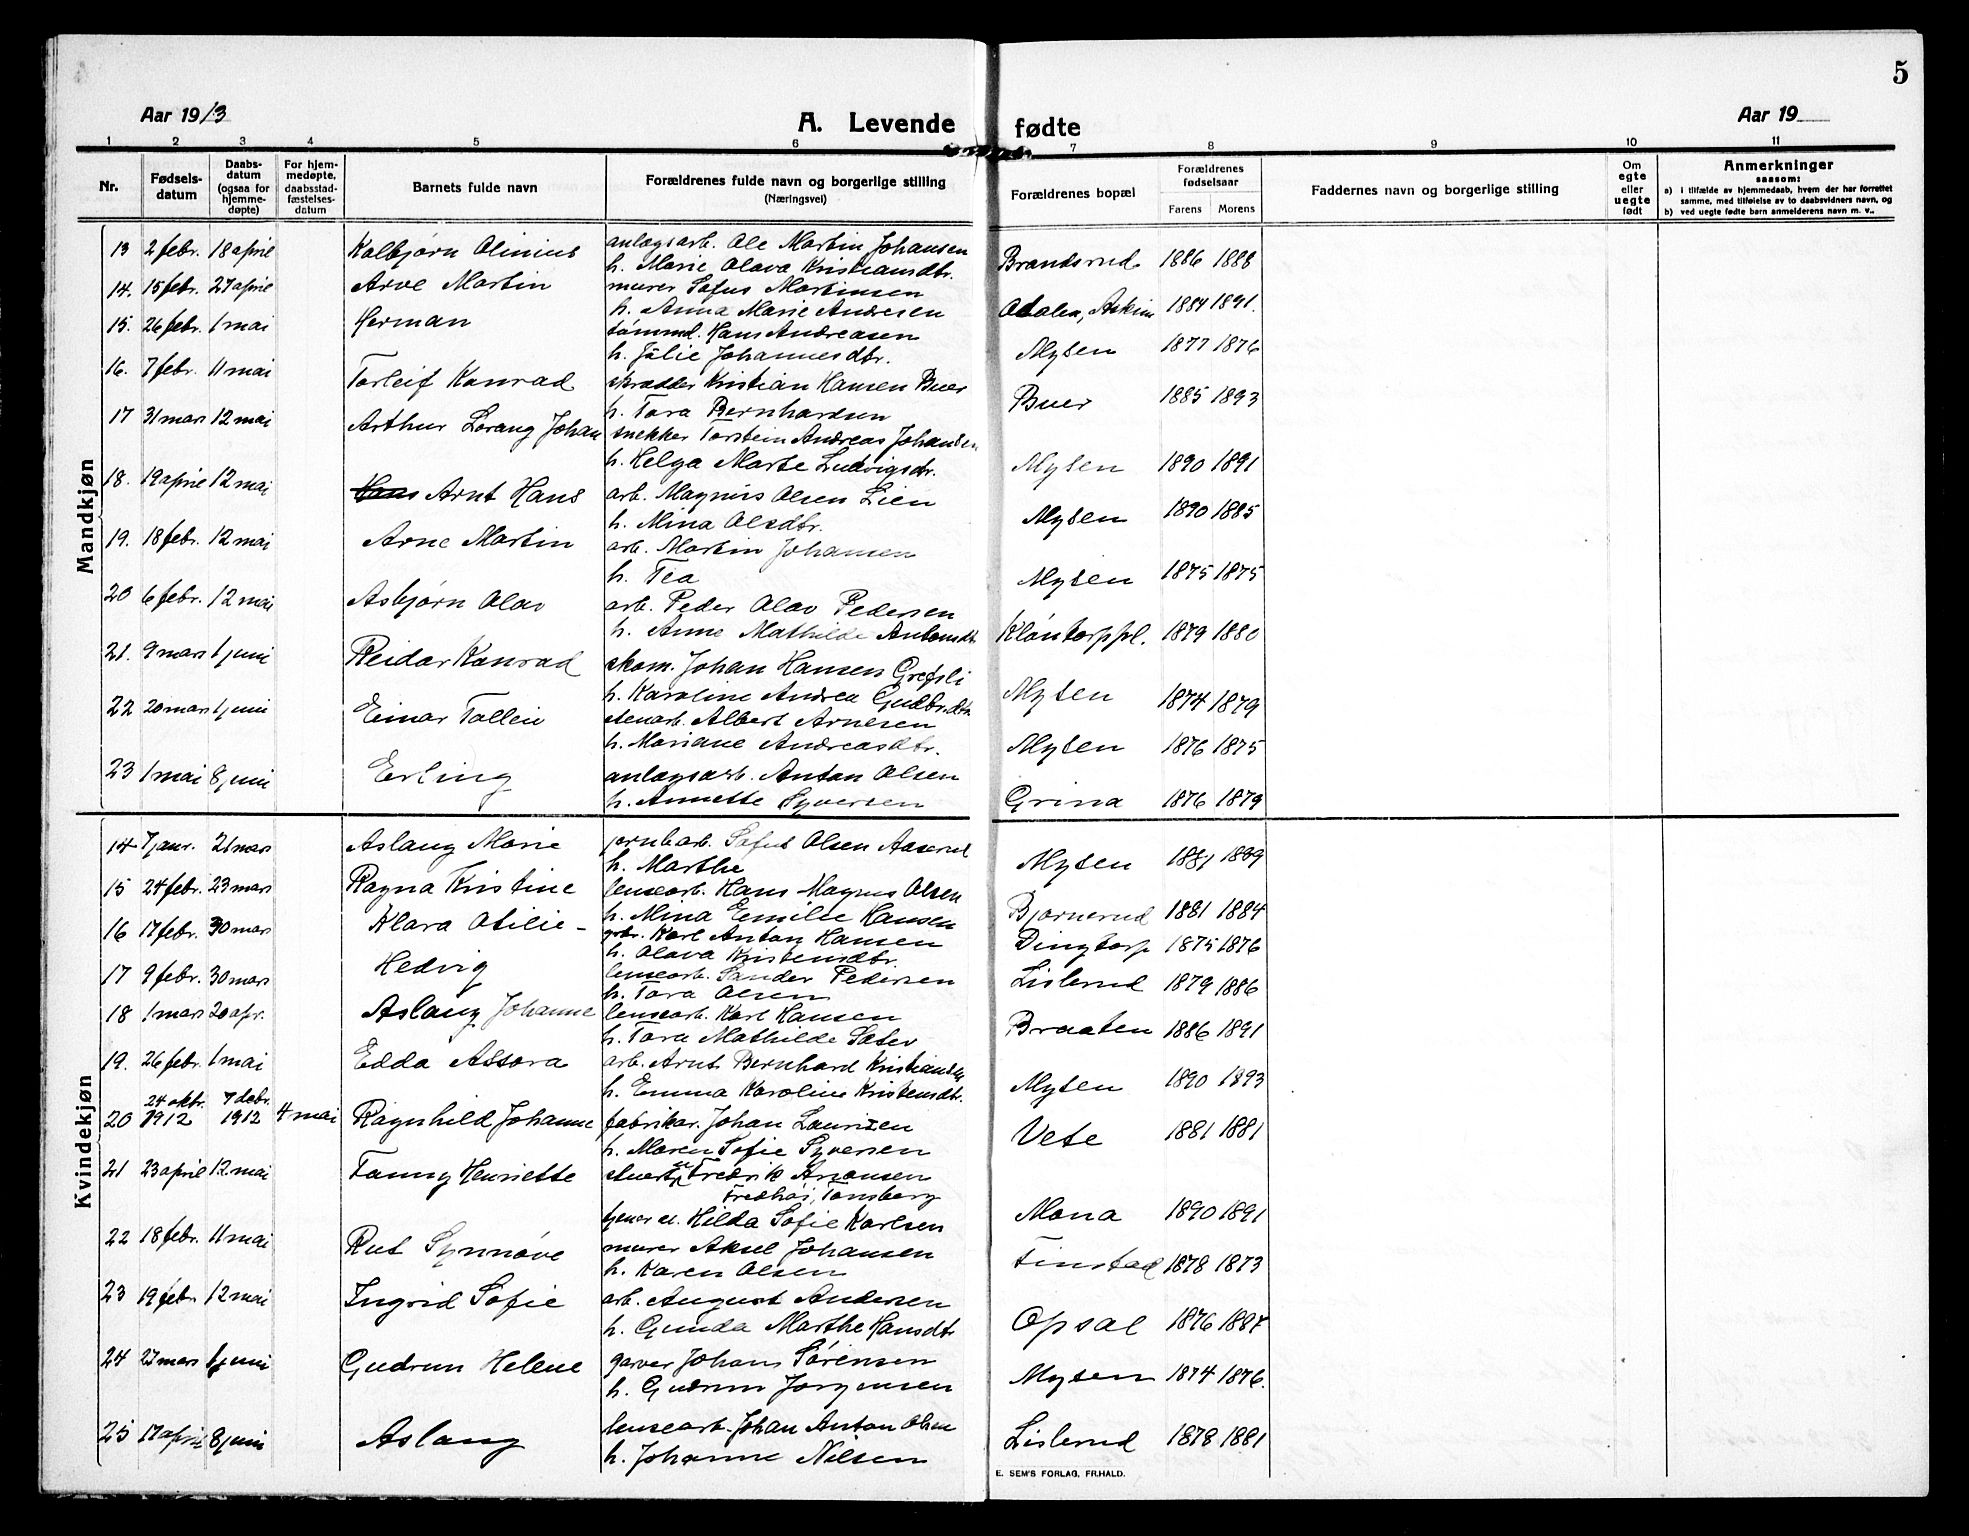 5
Aar 1913
A. Levende fødte
Aar 19
1 2 3 4 5 6 7 8 9 10 11
Nr.
Fødsels-datum
Daabs-datum (ogsaa for hjemme-døpte)
For hjem-medøpte, daabsstad-fæstelses-datum
Barnets fulde navn
Forældrenes fulde navn og borgerlige stilling (Næringsvei)
Forældrenes bopæl
Forældrenes fødselsaar
Farens Morens
Faddernes navn og borgerlige stilling
Om egte eller uegte født
Anmerkninger saasom:
a) i tilfælde av hjemmedaab, hvem der har forrettet samme, med tilføielse av to daabsvidners navn, og
b) ved uegte fødte børn anmelderens navn m. v.,
Mandkjøn
13 2 febr. 18 april Kolbjørn Olinius anlægsarb. Ole Martin Johansen
h. Marie Olava Kristiansdtr. Brandsrud 1886 1888
14. 15 febr. 27 april Arve Martin murer Sofus Martinsen
h. Anna Marie Andresen Askim 1884 1891.
15. 26 febr. 1 mai Herman tømmd. Hans Andreasen
h. Julie Johannesdtr. Mysen 1877 1876
16. 7 febr. 11 mai Torleif Konrad skrædder Kristian Hansen Buer
h. Tora Bernhardsen Buer 1885 1893
17 31 mars 12 mai Arthur Lorang Johan snekker Torstein Andreas Johansen
h. Helga Marte Ludvigsdtr. Mysen 1890 1891
18. 19 april 12 mai Hans Arnt Hans arb. Magnus Olsen Lien
h. Mina Olsdtr. Mysen 1890 1885
19. 18 febr. 12 mai Arne Martin arb. Martin Johansen
h. Tea Mysen 1875 1875
20 6 febr. 12 mai Asbjørn Olav arb. Peder Olav Pedersen
h. Anne Mathilde Antonsdtr. Kløntorppl. 1879 1880
21. 9 mars 1 juni Reidar Konrad skom. Johan Hansen Grefsli
h. Karoline Andrea Gudbr.dtr. Mysen 1874 1879
22 20 mars 1 juni Einar Tollein stenarb. Albert Arnesen
h. Mariane Andreasdtr. Mysen 1876 1875
23 1 mai 8 juni Erling anlægsarb. Anton Olsen
h. Annette Syversen Grina 1876 1879
Kvindekjøn
14 7 janr. 21 mars Aslaug Marie jernbarb. Sofus Olsen Aaserud
h. Marthe Mysen 1881 1889
15 24 febr. 23 mars Ragna Kristine lensearb. Hans Magnus Olsen
h. Mina Emilie Hansen Bjørnerud 1881 1884
16 17 febr. 30 mars Klara Otilie - grbr. Karl Anton Hansen
h. Olava Kristensdtr. Dingtorp 1875 1876
17 9 febr. 30 mars Hedvig lensearb. Sander Pedersen
h. Tora Olsen Lislerud 1879 1886
18 1 mars 20 apr. Aslaug Johanne lensearb. Karl Hansen
h. Tora Mathilde Sæter Braaten 1886 1891
19. 26 febr. 1 mai Edda Assora arb. Arnt Bernhard Kristiansen
h. Emma Karoline Kristensdtr. Mysen 1890 1893
20 24 oktbr. 1912 7 debr. 1912 4 mai Ragnhild Johanne fabrikar. Johan Lauritzen
h. Maren Sofie Syversen Vete 1881 1881
21 23 april 12 mai Fanny Henriette Fredrik
Tønsberg
Hilda Sofie Karlsen Mona 1890 1891
22 18 febr. 11 mai Rut Synnøve murer Aksel Johansen
h. Karen Olsen Finstad 1878 1873
23 19 febr. 12 mai Ingrid Sofie arb. August Andersen
h. Gunda Marthe Hansdtr Opsal 1876 1887
24 27 mars 1 juni Gudrun Helene garver Johans Sørensen
h. Gudrun Jørgensen Mysen 1874 1876.
25 17 april 8 juni Aslaug lensearb. Johan Anton Olsen
h. Johanne Nilsen Lislerud 1878 1881
E. SEM'S FORLAG, FR.HALD.